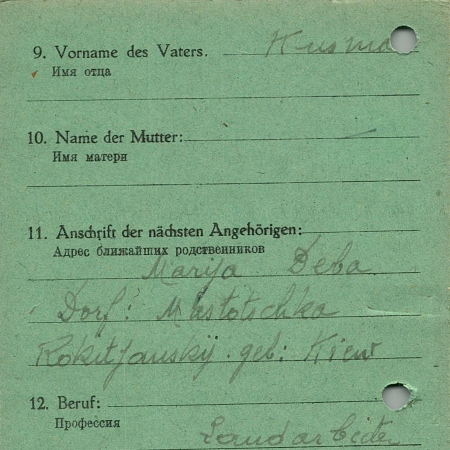 9. Vorname des Vaters. Kusma
Имя отца
10. Name der Mutter: —
Имя матери
11. Anschrift der nächsten Angehörigen:
Адрес ближайших родственников
Marija Deba
Dorf:
Rokitjanskij. geb: Kiew
12. Beruf:
Профессия
Landarbeiter